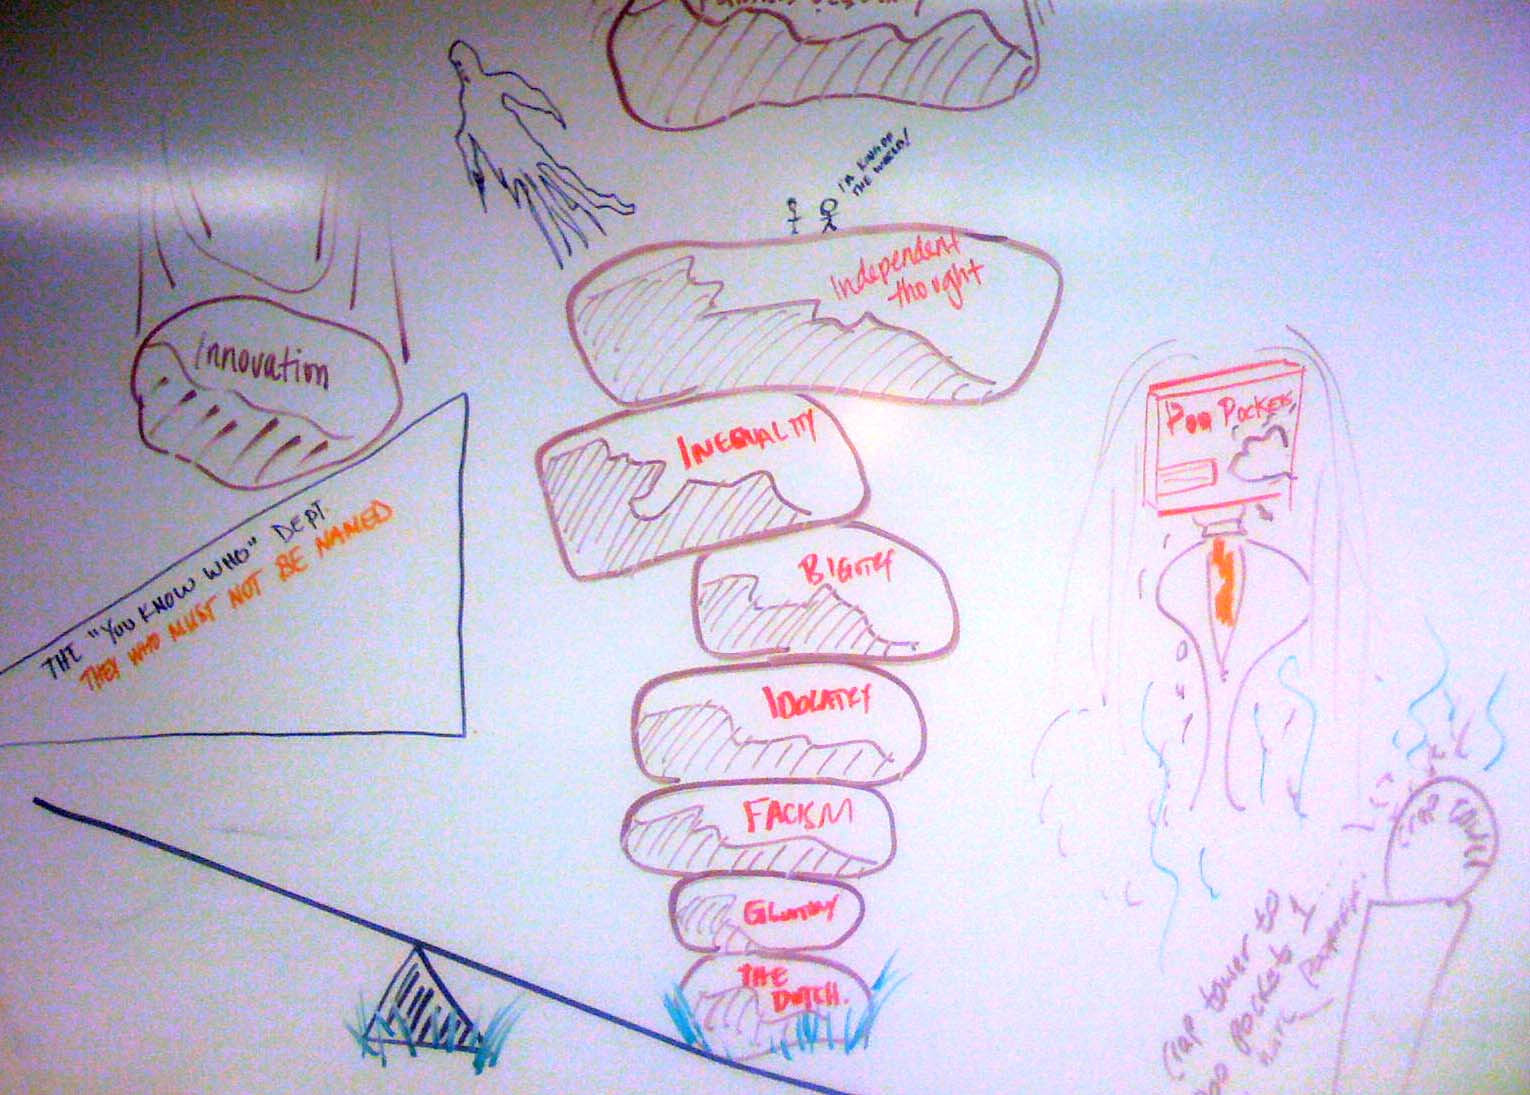 I'M KING OF
THE WORLD!
Independent
thought
Innovation
INEQUALITY
THE "YOU KNOW WHO" DEPT.
THEY WHO MUST NOT BE NAMED
BIGOTRY
IDOLATRY
FACISM
GLUTTONY
THE
DUTCH.
POO POCKETS
CRAP TOWER
Crap tower to
POO POCKETS 1